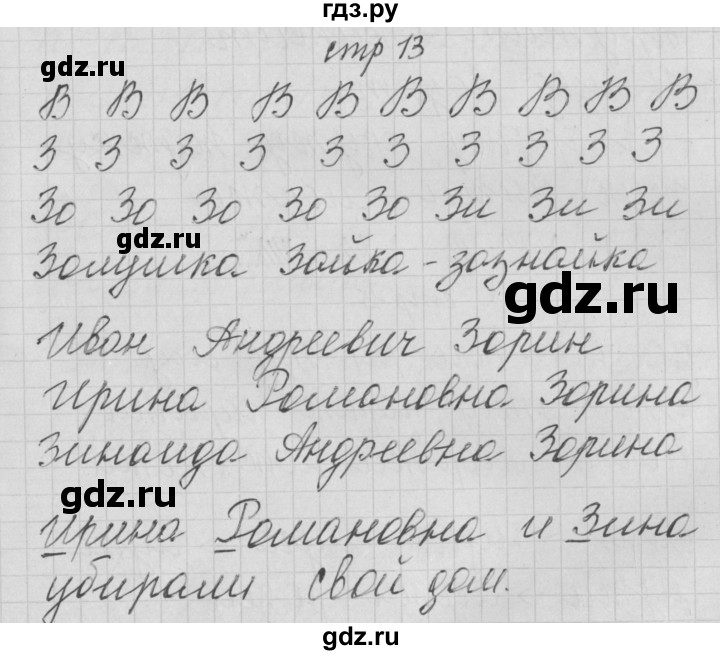 гдз.ру
стр 13
gdz.ru
В В В В В В В В В В
З З З З З З З З З З
Зо Зо Зо Зо Зо Зи Зи Зи
gdz.ru
Золушка Зайка - зазнайка
gdz.ru
Иван Андреевич Зорин
Ирина Романовна Зорина
Зинаида Андреевна Зорина
gdz.ru
Ирина Романовна и Зина
убирали свой дом.
gdz.ru